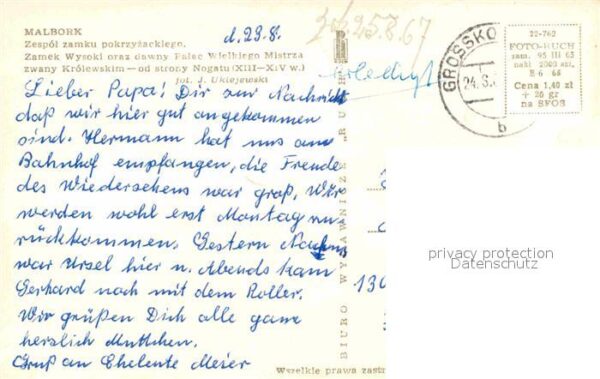 MALBORK
Zespół zamku pokrzyżackiego.
Zamek Wysoki oraz dawny Pałac Wielkiego Mistrza
zwany Królewskim — od strony Nogatu (XIII-XIV w.)
fot. J. Uklejewski
d. 23.8.
25.8.67
erledigt
GROSSKO
24.8.
b
22-762
FOTO-RUCH
zam. 95 III 65
nakł 2000 szt.
R 6 66
Cena 1,40 zł
+ 20 gr
na SFOS
Lieber Papa! Dir zur Nachricht
daß wir hier gut angekommen
sind. Hermann hat uns am
Bahnhof empfangen, die Freude
des Wiedersehens war groß. Wir
werden wohl erst Montag zu
rückkommen. Gestern Nachm.
war Ursel hier u. Abends kam
Gerhard noch mit dem Roller.
Wir grüßen Dich alle ganz
herzlich Muttchen.
Gruß an Eheleute Meier
BIURO WYDAWNICZE "RU
130
privacy protection
Datenschutz
Wszelkie prawa zastr